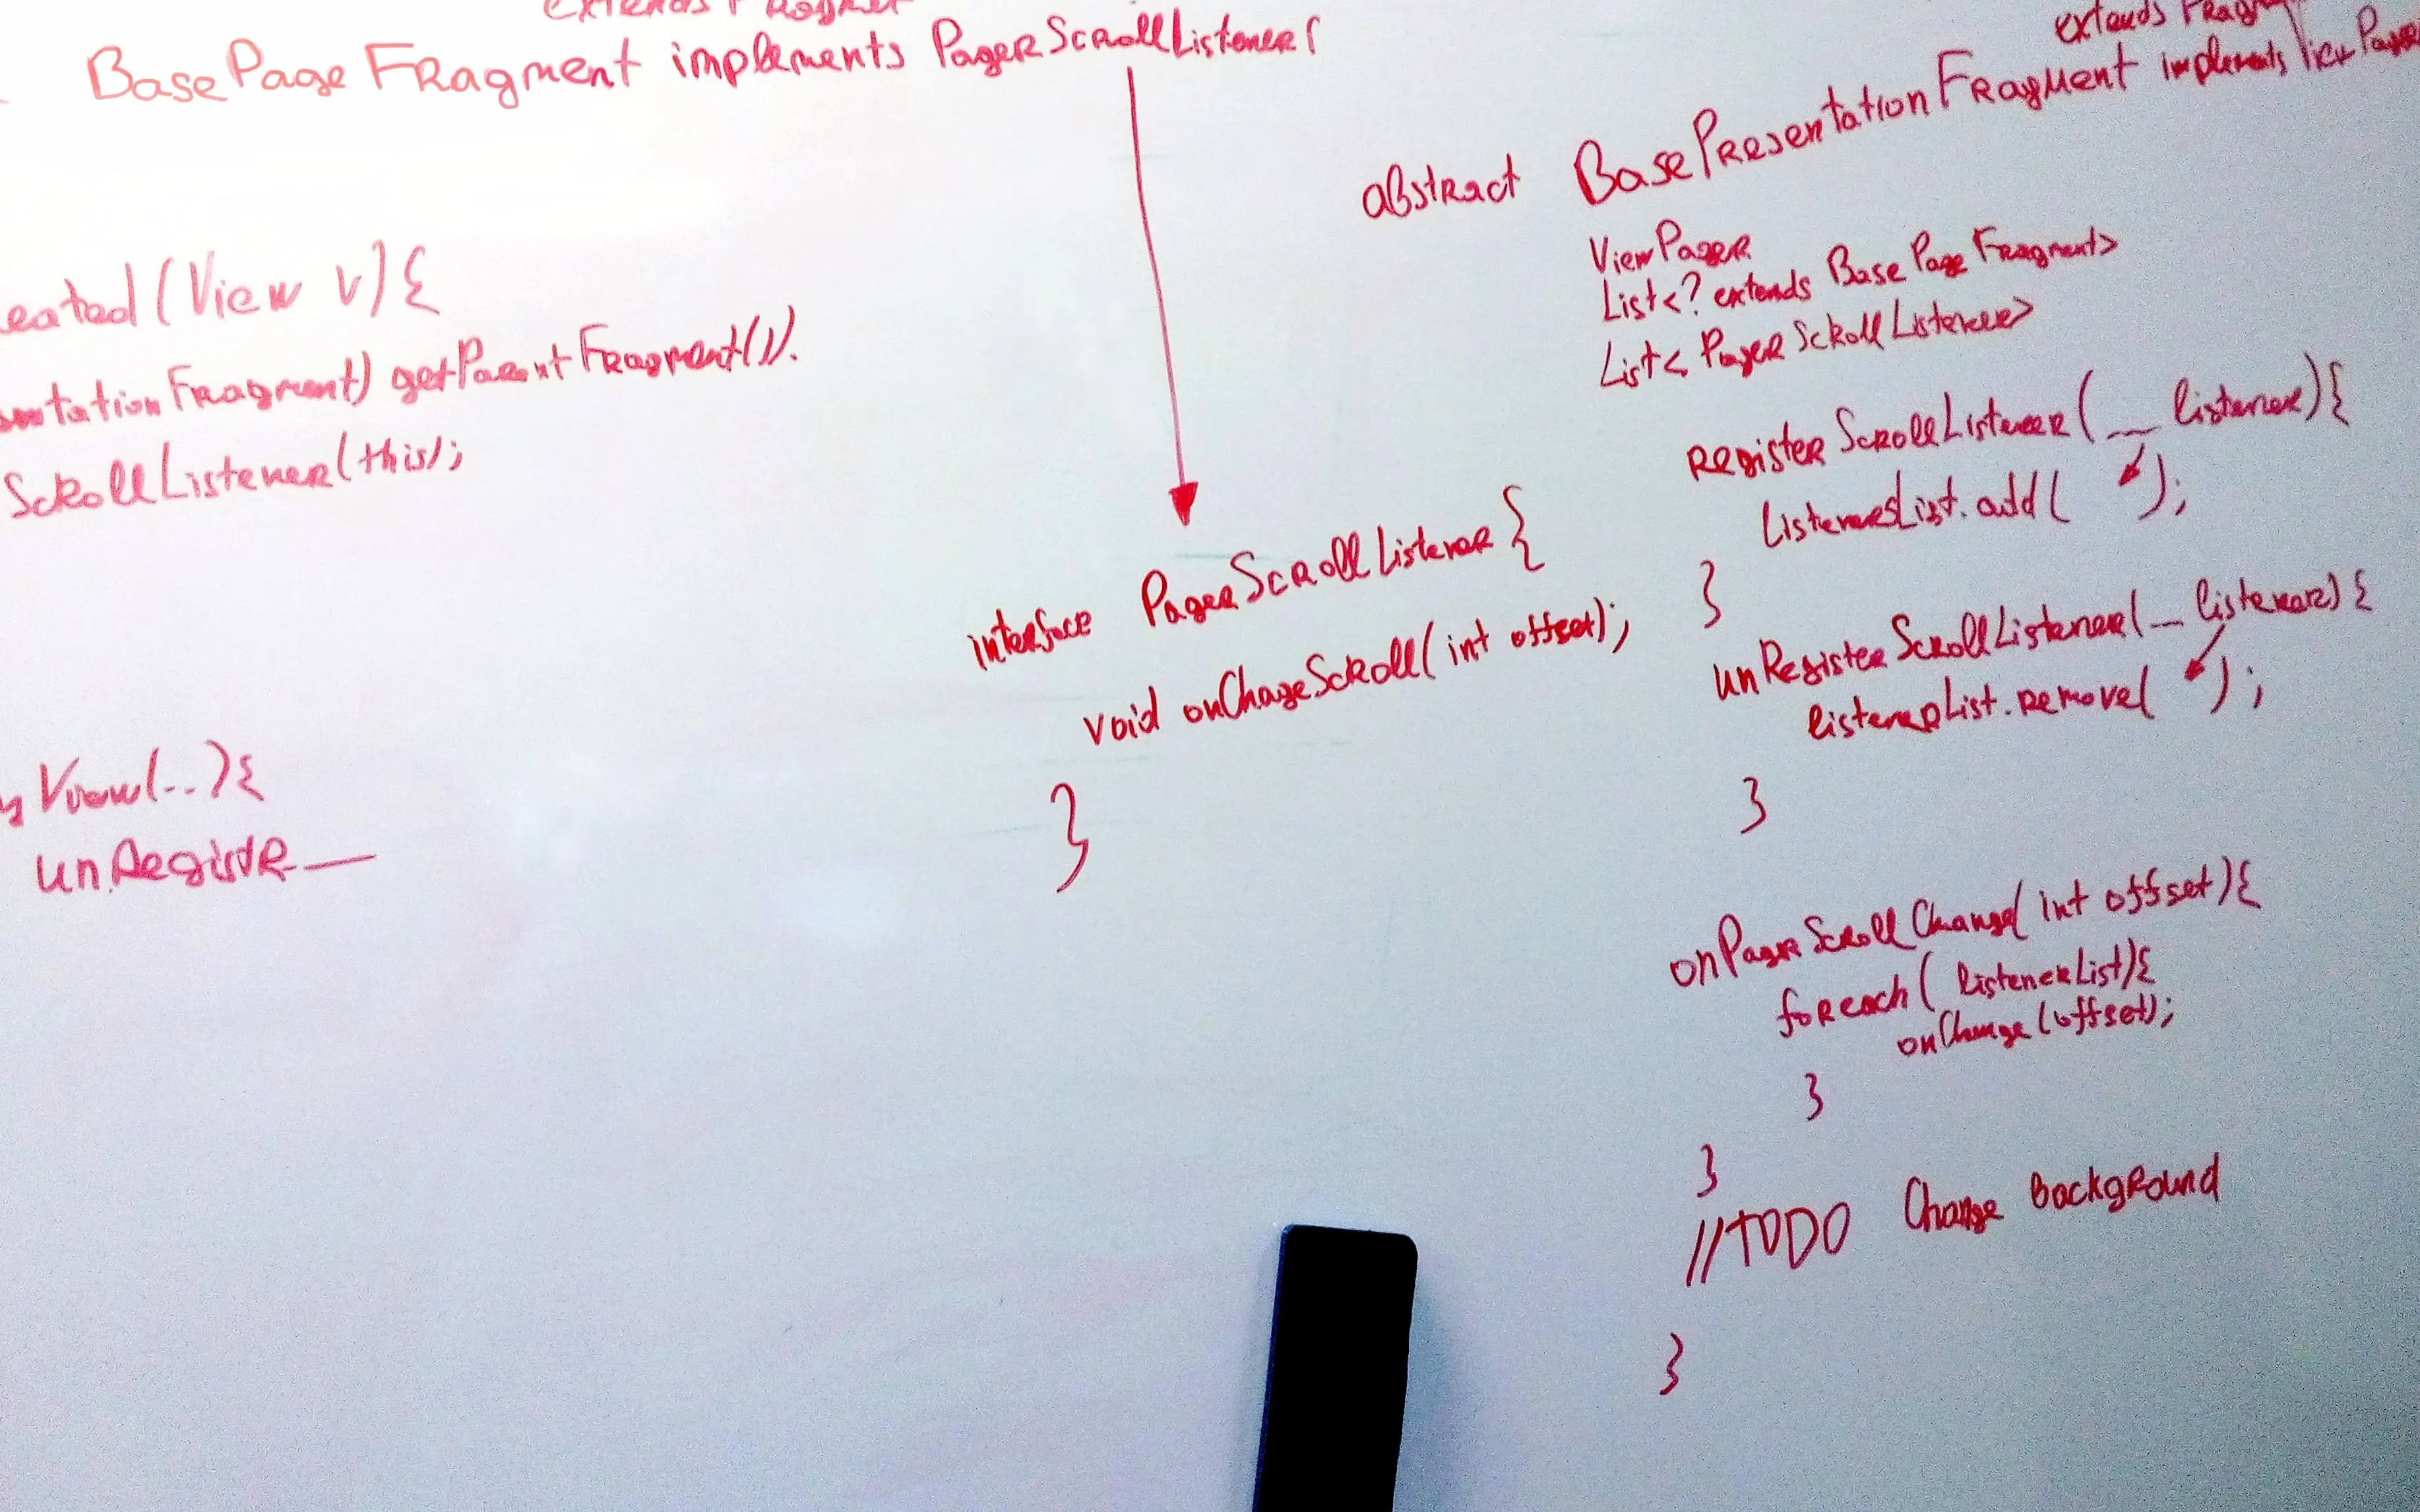 extends Fragmet
BasePageFragment implements PagerScrollListener{
eated(View v){
entationFragment) getParentFragment()).
ScrollListener(this);
yView(..){
unRegistR__
interface PagerScrollListener {
void onChageScroll(int offset);
}
extends Fragm
abstract BasePresentationFragment implements ViewPager
ViewPager
List<? extends BasePageFragment>
List<PagerScrollListener>
registerScrollListener(__ listener){
listenersList.add( );
}
unRegisterScrollListener(__ listener){
listenerList.remove( );
}
onPagerScrollChange(int offset){
foreach( listenerList){
onChange(offset);
}
}
//TODO Change background
}